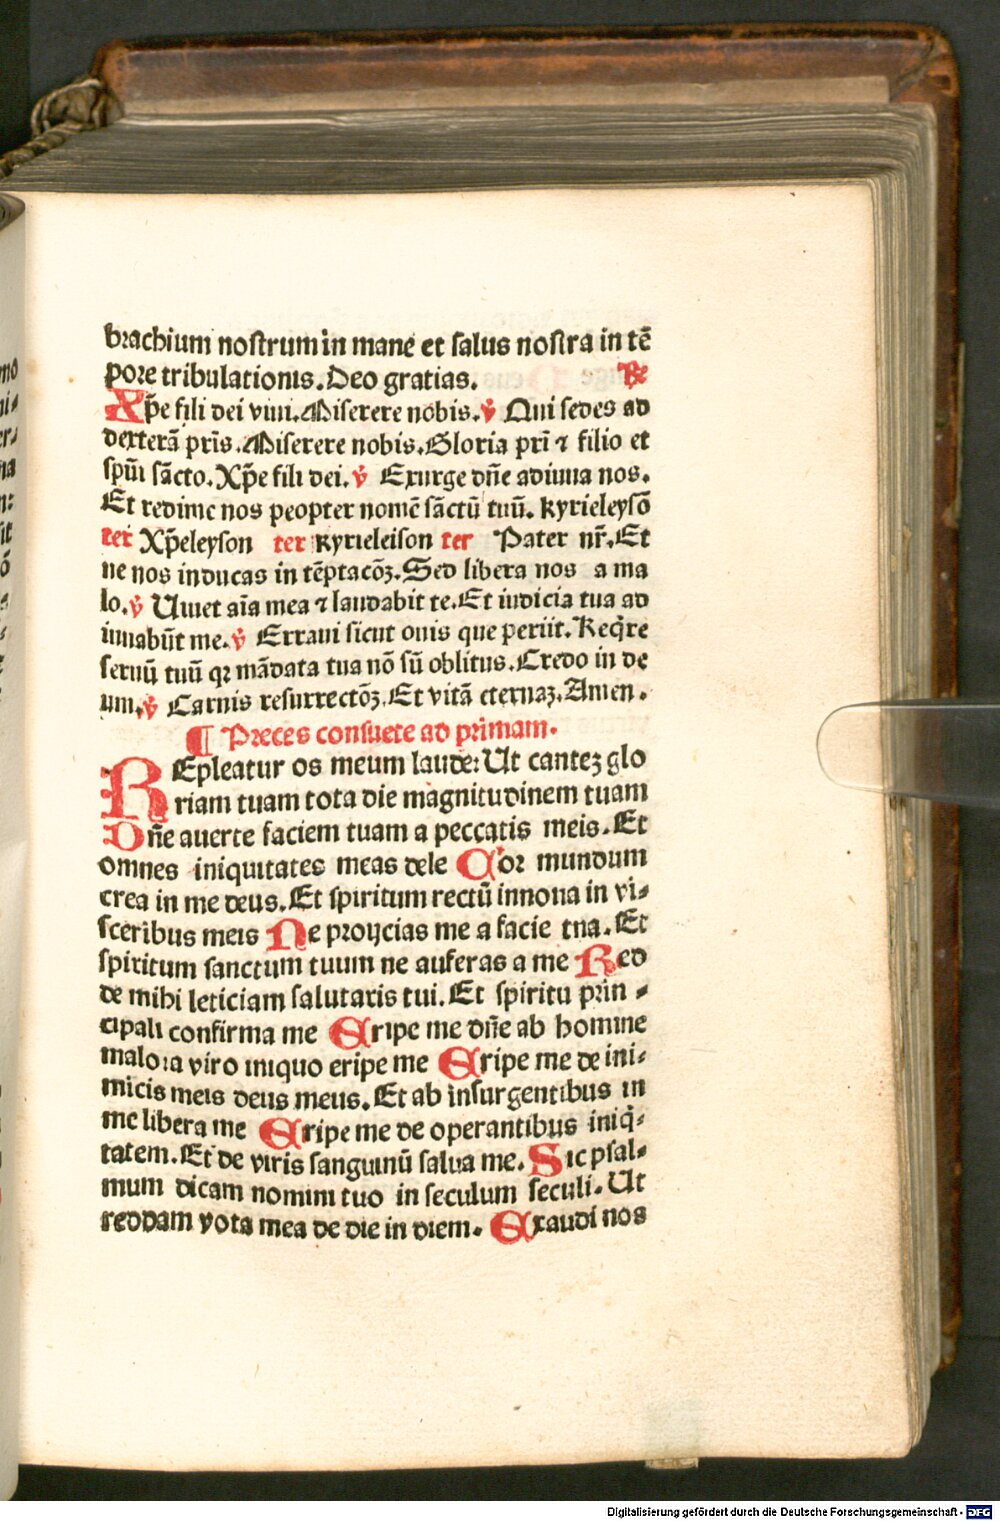 brachium nostrum in mane et salus nostra in tē
pore tribulationis. Deo gratias. ℟
Xp̄e fili dei viui. Miserere nobis. ℣ Qui sedes ad
dexterā pr̄is. Miserere nobis. Gloria pr̄i ⁊ filio et
spūi sācto. Xp̄e fili dei. ℣ Exurge dn̄e adiuua nos.
Et redime nos peopter nomē sāctū tuū. kyrieleysō
ter Xp̄eleyson ter kyrieleison ter Pater nr̄. Et
ne nos inducas in tēptacōꝫ. Sed libera nos a ma
lo. ℣ Uiuet aīa mea ⁊ laudabit te. Et iudicia tua ad
iuuabūt me. ℣ Erraui sicut ouis que periit. Reqͥre
seruū tuū qꝛ mādata tua nō sū oblitus. Credo in de
um. ℣ Carnis resurrectōꝫ. Et vitā eternaꝫ. Amen.
¶ Preces consuete ad primam.
REpleatur os meum laude: Ut canteꝫ glo
riam tuam tota die magnitudinem tuam
Dn̄e auerte faciem tuam a peccatis meis. Et
omnes iniquitates meas dele Cor mundum
crea in me deus. Et spiritum rectū innoua in vi⸗
sceribus meis Ne proijcias me a facie tua. Et
spiritum sanctum tuum ne auferas a me Red
de mihi leticiam salutaris tui. Et spiritu prin⸗
cipali confirma me Eripe me dn̄e ab homine
malo: a viro iniquo eripe me Eripe me de ini⸗
micis meis deus meus. Et ab insurgentibus in
me libera me Eripe me de operantibus iniqͥ⸗
tatem. Et de viris sanguinū salua me. Sic psal⸗
mum dicam nomini tuo in seculum seculi. Ut
reddam vota mea de die in diem. Exaudi nos
Digitalisierung gefördert durch die Deutsche Forschungsgemeinschaft - DFG